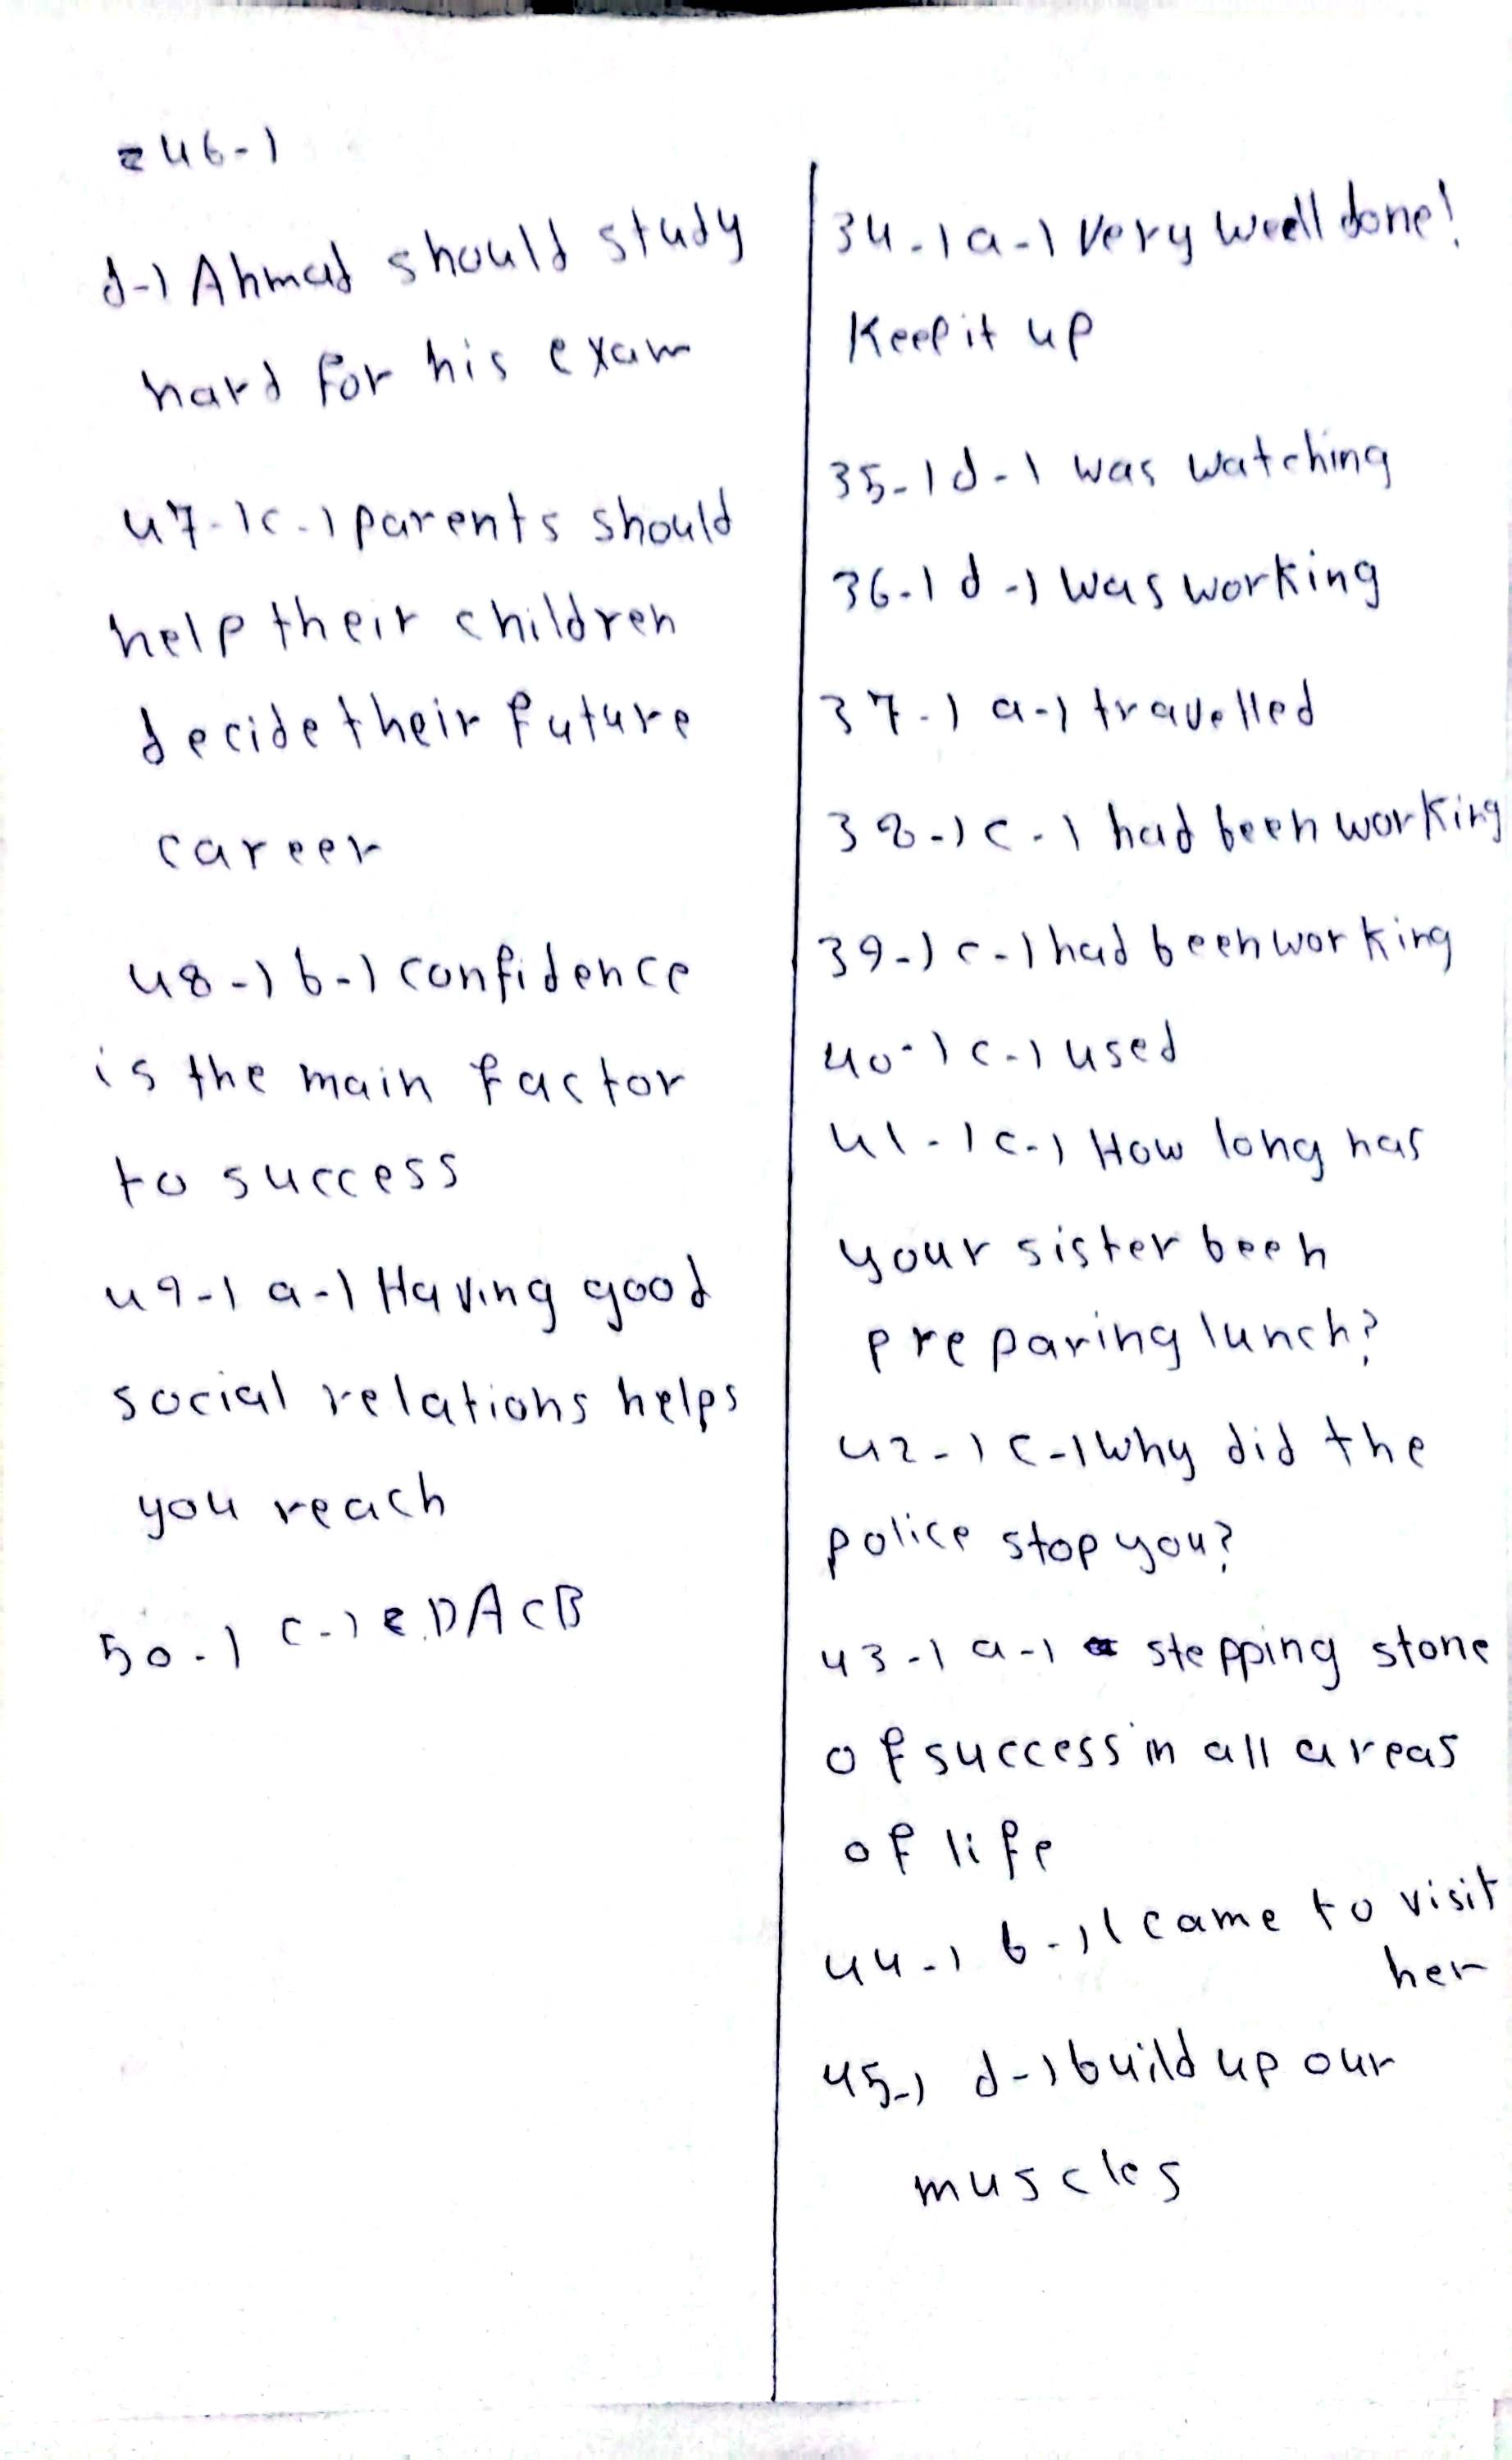 46-)
d-) Ahmad should study
hard for his exam
47-) c-) parents should
help their children
decide their future
career
48-) b-) confidence
is the main factor
to success
49-) a-) Having good
social relations helps
you reach
50-) c-) E.DACB
34-) a-) Very well done!
Keep it up
35-) d-) was watching
36-) d-) was working
37-) a-) travelled
38-) c-) had been working
39-) c-) had been working
40-) c-) used
41-) c-) How long has
your sister been
preparing lunch?
42-) c-) Why did the
police stop you?
43-) a-) stepping stone
of success in all areas
of life
44-) b-) I came to visit
her
45-) d-) build up our
muscles